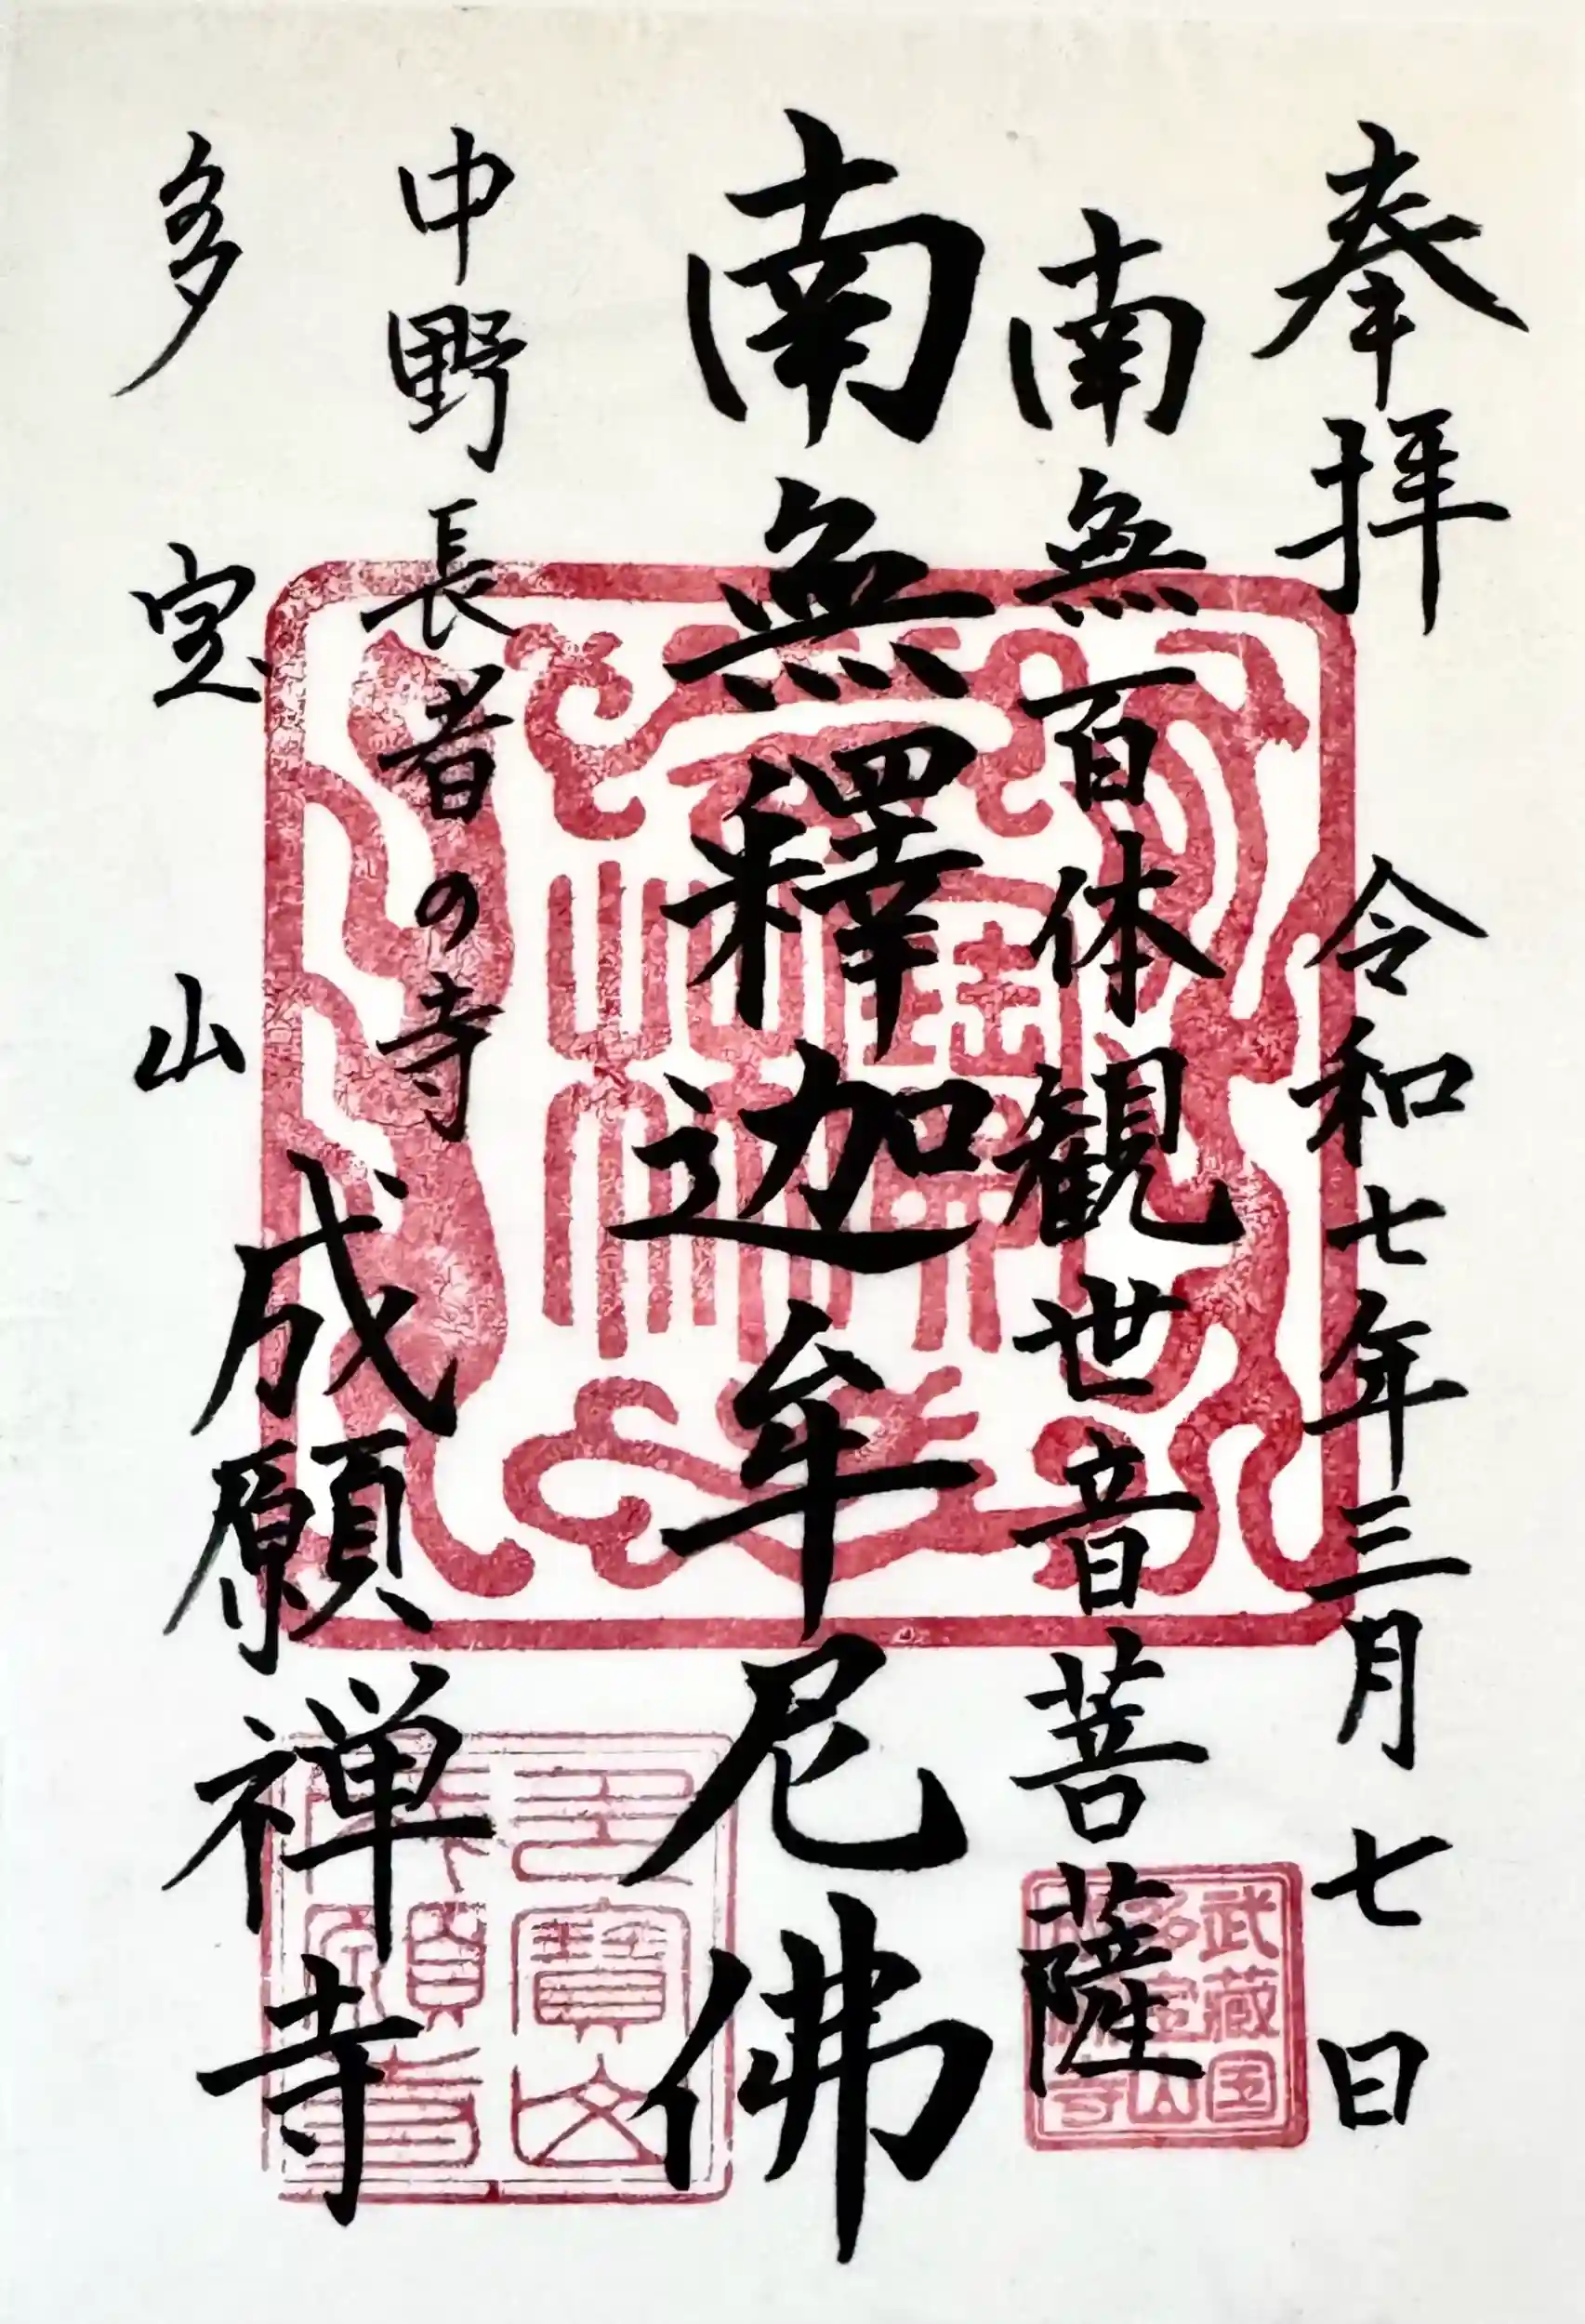 奉拝 令和七年三月七日
南無百体観世音菩薩
南無釋迦牟尼佛
中野長者の寺
多宝山
成願禅寺
武蔵国
多寶山